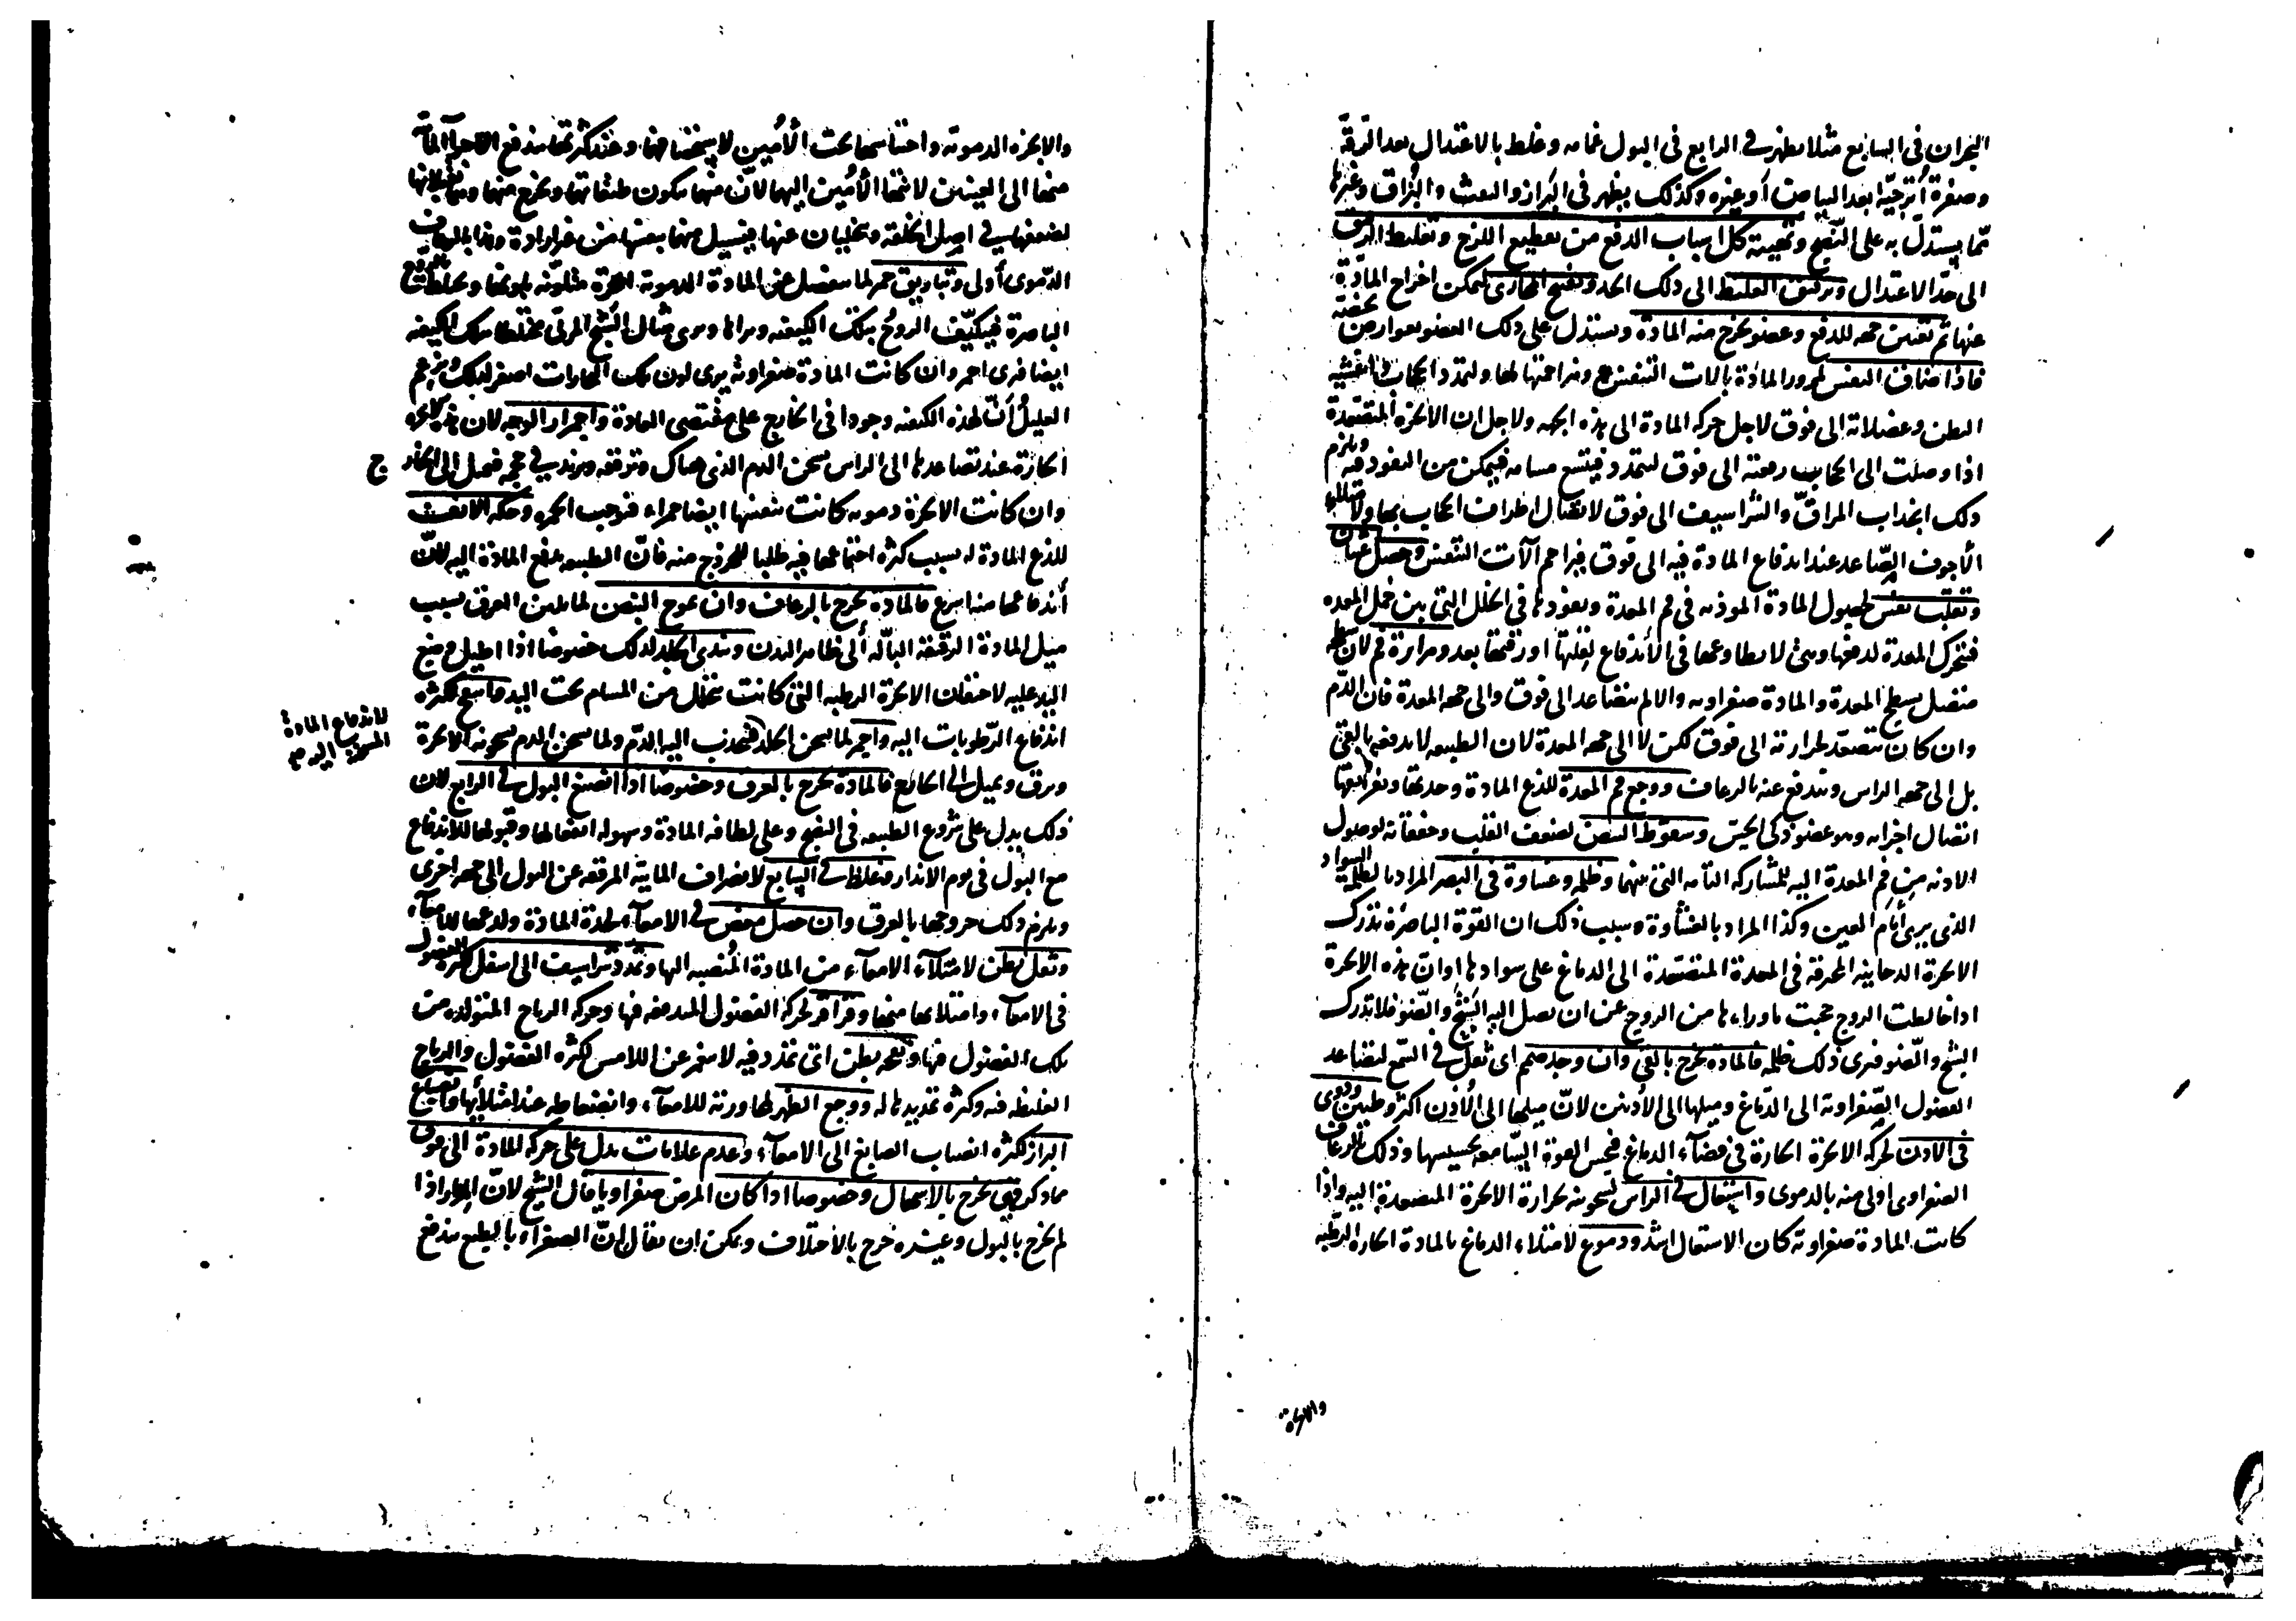 البحران في السابع مثلا يظهر في الرابع في البول غمامه وغلظ بالاعتدال بعد الرقة
وصفرة أترجيّة بعد البياض أو غيره وكذلك يظهر في البراز والنفث والبزاق وغيرها
ممّا يستدلّ به على النضج وتهيئة كل اسباب الدفع من تقطيع اللزج وتغليظ الرقيق
الى حدّ الاعتدال وترقيق الغليظ الى ذلك الحد وتفتيح المجارى ليمكن اخراج المادّة
عنها ثم تعين جهه للدفع وعضو يخرج منه المادّة ويستدل على ذلك العضو بعوارض تخصّه
فاذا ضاق النفس لمرور المادّة بالات التنفس ومزاحمتها لها ولتمدد الحجاب
البطن وعضلاته الى فوق لاجل حركه المادة الى هذه الجهه ولاجل ان الابخرة المتصعّدة
اذا وصلت الى الحجاب رفعته الى فوق لتمدد فيتسع مسامه فيمكن من النفود فيه ويلزم
ذلك انجذاب المراقّ والشراسيف الى فوق لاتصال اطراف الحجاب بها
الأجوف الصّاعد عند اندفاع المادة فيه الى فوق فيزاحم آلات التنفس وحصل غثيان
وتقلّب نفس لحصول المادة الموذيه في فم المعدة ونفودها في الخلل التي بين خمل المعده
فتتحرك المعدة لدفعها وهى لا تطاوعها في الأندفاع لغلظها او رقتها بعد ومرارة فم لان سطحه
متصل بسطح المعدة والمادة صفراويه والا لم يتصاعد الى فوق والى جهه المعدة فان الدّم
وان كان يتصعّد لحرارته الى فوق لكن لا الى جهه المعدة لان الطبيعه لا تدفعه بالقئ
بل الى جهه الراس ويندفع عنه بالرعاف ووجع فم المعدة للذع المادة وحدتها وتفريقها
اتصال اجزائه وهو عضو ذكى الحسّ وسقوط النبض لضعف القلب وخفقانه لوصول
الاذيه من فم المعدة اليه للمشاركه التامه التي بينهما وظلمه وغشاوة في البصر المراد بالظلمة السواد
الذي يرى أمام العين وكذا المراد بالغشأوة وسبب ذلك ان القوة الباصرة تدرك
الابخرة الدخانيه المحرقة في المعدة المتصعّدة الى الدماغ على سوادها اوان هذه الابخرة
اذا خالطت الروح حجبت ماوراءها من الروح عن ان يصل اليه الشبح والضوء فلا تدرك
الشبح والضوء فترى ذلك ظلمه فالمادة يخرج بالقئ وان وجد صمم اى ثقل في السمع لتصاعد
الفضول الصّفراوية الى الدّماغ وميلها الى الأذنين لانّ ميلها الى الأذن اكثر وطنين ودوى
في الاذن لحركه الابخرة الحارة في فضاء الدماغ فيحس القوة السّامعه بحسيسها وذلك بالرعاف
الصفراوى اولى منه بالدموى واشتعال في الراس لسخونته بحرارة الابخرة المتصعدة اليه واذا
كانت المادة صفراوية كان الاشتعال اشد ودموع لامتلاء الدماغ بالمادة الحاره الرطبه
والابخرة
والابخره الدمويه واحتباسها تحت الأمين لاستحصافها وعند كثرتها يندفع
منها الى العينين لانتهاء الأمين اليها لانّ منها يكون طبقاتها ويخرج منها
لضعفها في اصل الخلقه وتخليان عنها فيسيل منها بعضها من غير ارادة وهذا بالرعاف
الدّموى أولى وتباريق حمر لما ينفصل عن المادة الدمويه ابخرة متلونه بلونها ويخلط بالروح
الباصرة فيتكيّف الروح بتلك الكيفيه ويراها ويرى مثال الشبح المرئى مختلطا بتلك الكيفيه
ايضا فيرى احمر وان كانت المادة صفراوية يرى لون تلك البخارات اصفر لذلك ويزعم
العليل أنّ لهذه الكيفيه وجودا في الخارج على مقتضى العادة واحمرار الوجه لان هذه الابخره
الحارة عند تصاعدها الى الراس يسخن الدم الذي هناك وترققه ويزيد في حجمه فيميل الى الخارج
وان كانت الابخرة دمويه كانت بنفسها ايضا حمراء فتوجب الحمره وحكه الانف
للذع المادة له بسبب كثرة اجتماعها فيه طلبا للخروج منه فانّ الطبيعه يدفع المادة اليه لانّ
أندفاعها منه اسرع فالمادة يخرج بالرعاف وان تموج النبض لما يلين العرق بسبب
ميل المادة الرقيقة البالّه ألى ظاهر البدن وتندى الجلد لذلك خصوصا اذا اطيل وضع
اليد عليه لاحتقان الابخرة الرطبه التي كانت يتحلل من المسام تحت اليد واسخ لكثره
اندفاع الرّطوبات اليه واحمر لما يسخن الجلد فينجذب اليه الدّم ولما يسخن الدم بسخونه الابخرة
ويرق ويميل الى الخارج فالمادة يخرج بالعرق وخصوصا اذا انصبغ البول في الرابع لان
ذلك يدل على شروع الطبيعه في النضج وعلى لطافه المادة وسهوله انفعالها وقبولها للاندفاع
مع البول في يوم الانذار وغلظ في السابع لانصراف المائية المرققه عن البول الى جهه اخرى
ويلزم ذلك خروجها بالعرق وان حصل مغص في الامعاء لحدة المادة ولدعها للامعاء
وثقل بطن لامتلاء الامعاء من المادة المنصبه اليها وتمدد شراسيف الى اسفل لكثرة الفضول
في الامعاء وامتلائها منها وقراقر لحركه الفضول المندفعه فيها وحركه الرياح المتولده من
تلك الفضول فيها ونفخه بطن اى تمدد فيه لا ينغمز عن اللامس لكثره الفضول والرياح
الغليظه فيه وكثرة تمديدها له ووجع الظهر لمجاورته للامعاء وانضغاطه عند امتلائها وانصباغ
البراز لكثره انصباب الصابغ الى الامعاء وعدم علامات يدل على حركه المادة الى فوق
مما ذكر فهى يخرج بالاسهال وخصوصا اذا كان المرض صفراويا قال الشيخ لانّ المرار اذا
لم يخرج بالبول وغيره خرج بالاختلاف ويمكن ان يقال لانّ الصفراء بالطبع يندفع
ج
لاندفاع المادة
اليه صح